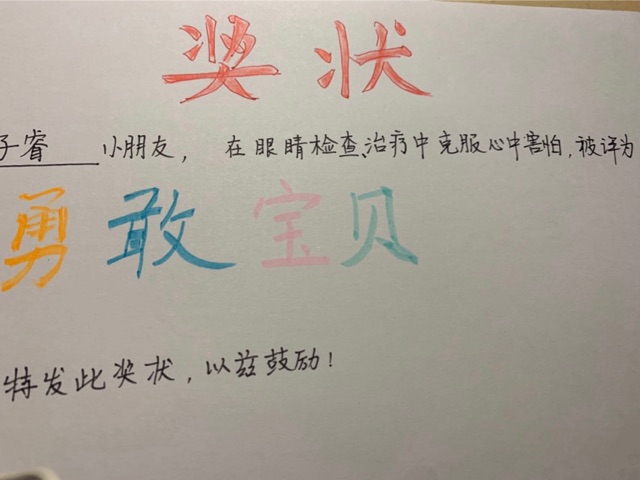 奖状
子睿 小朋友，在眼睛检查、治疗中克服心中害怕，被评为
勇敢宝贝
特发此奖状，以兹鼓励！